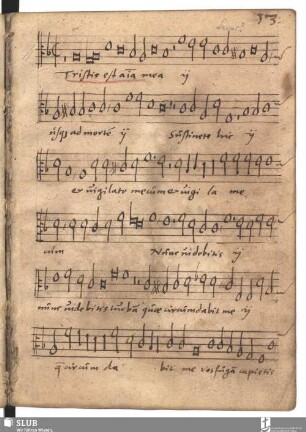 33.
Tristis est aīa mea ij
usq; ad mortē ij Sustinete hic ij
et vigilate mecum et vigi la me
cum Nūnc videbitis ij
nūnc videbitis turbā quæ circumdabit me ij
q̄ circum da bit me vos fugā capietis
SLUB